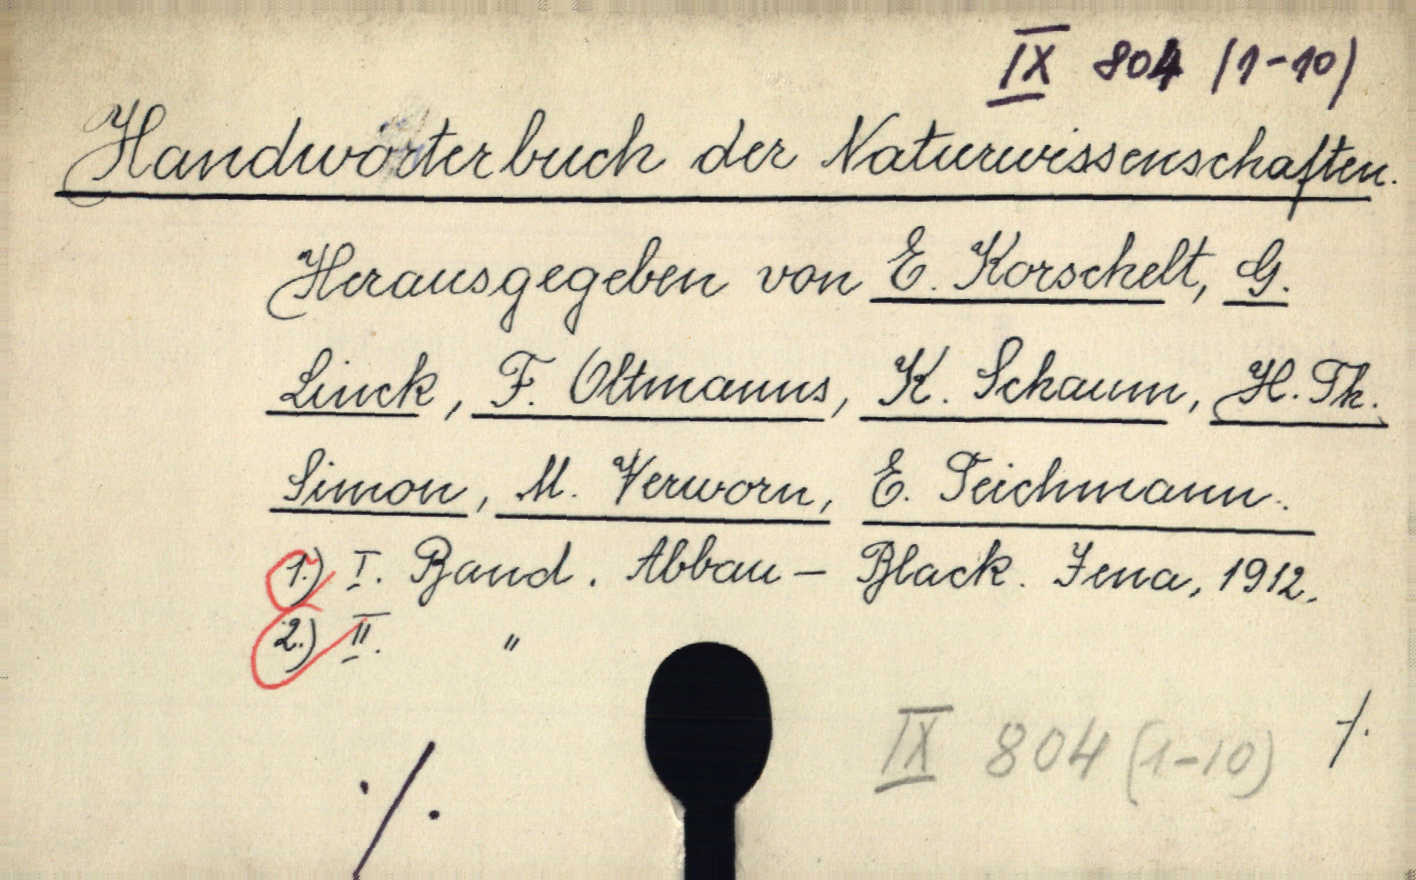 IX 804 (1-10)
Handwörterbuch der Naturwissenschaften.
Herausgegeben von E. Korschelt, G.
Linck, F. Oltmanns, K. Schaum, H. Th.
Simon, M. Verworn, E. Teichmann.
1.) I. Band. Abbau – Black. Jena, 1912.
2.) II. "
IX 804 (1-10) /.
./.